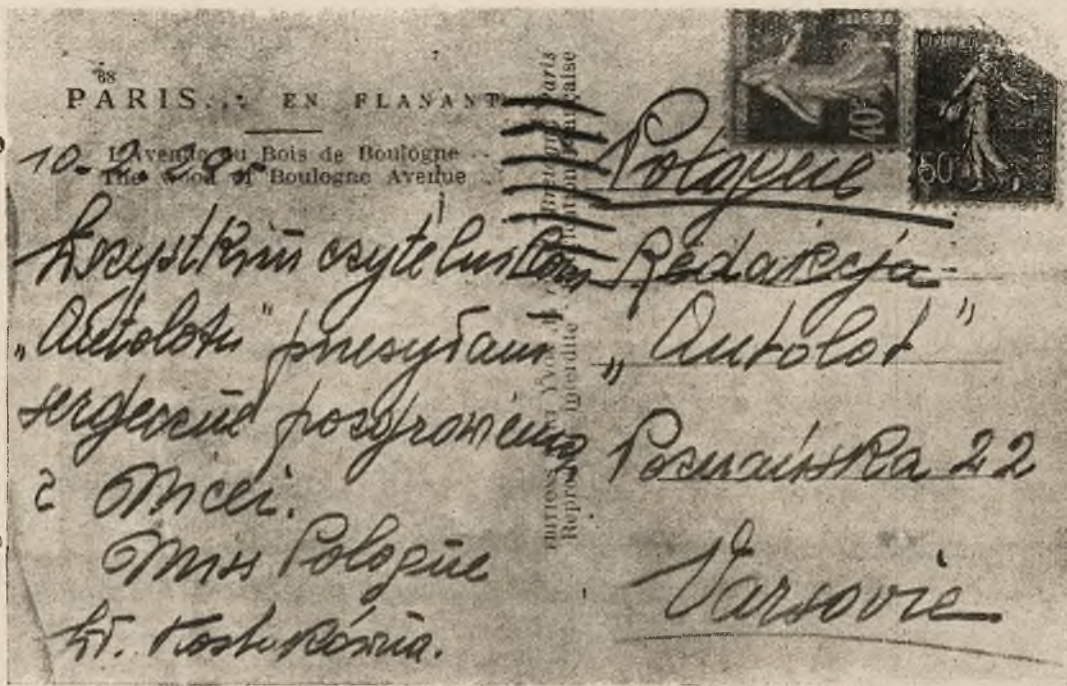 68
PARIS... EN FLANANT
L'Avenue du Bois de Boulogne
The Wood of Boulogne Avenue
10.2.29
Wszystkim czytelnikom
„Autolotu" przesyłam
serdeczne pozdrowienia
z Nicei.
Miss Pologne
Wł. Kostakówna.
EDITIONS D'ART YVON
Reproduction interdite
Pologne
Redakcja
„Autolot"
Poznańska 22
Varsovie
40c
50c